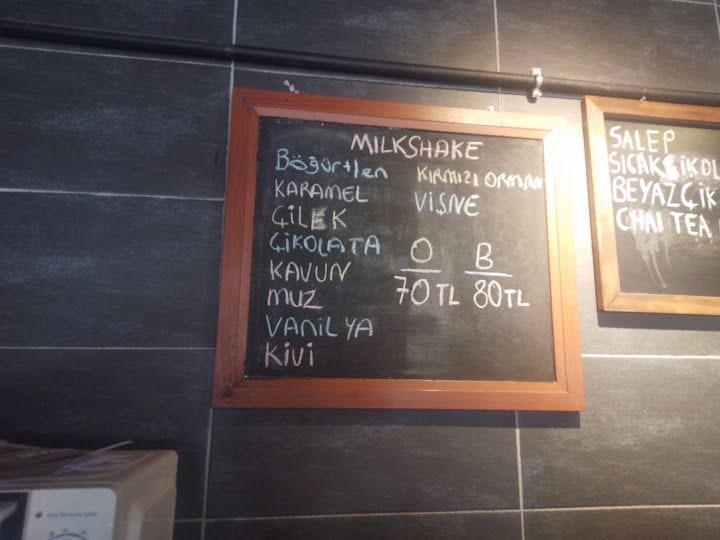 MILKSHAKE
Böğürtlen
KARAMEL
ÇİLEK
ÇİKOLATA
KAVUN
MUZ
VANİLYA
KİVİ
KIRMIZI ORMAN
VİŞNE
O B
70 TL 80 TL
SALEP
SICAK ÇİKOL
BEYAZ ÇİK
CHAI TEA